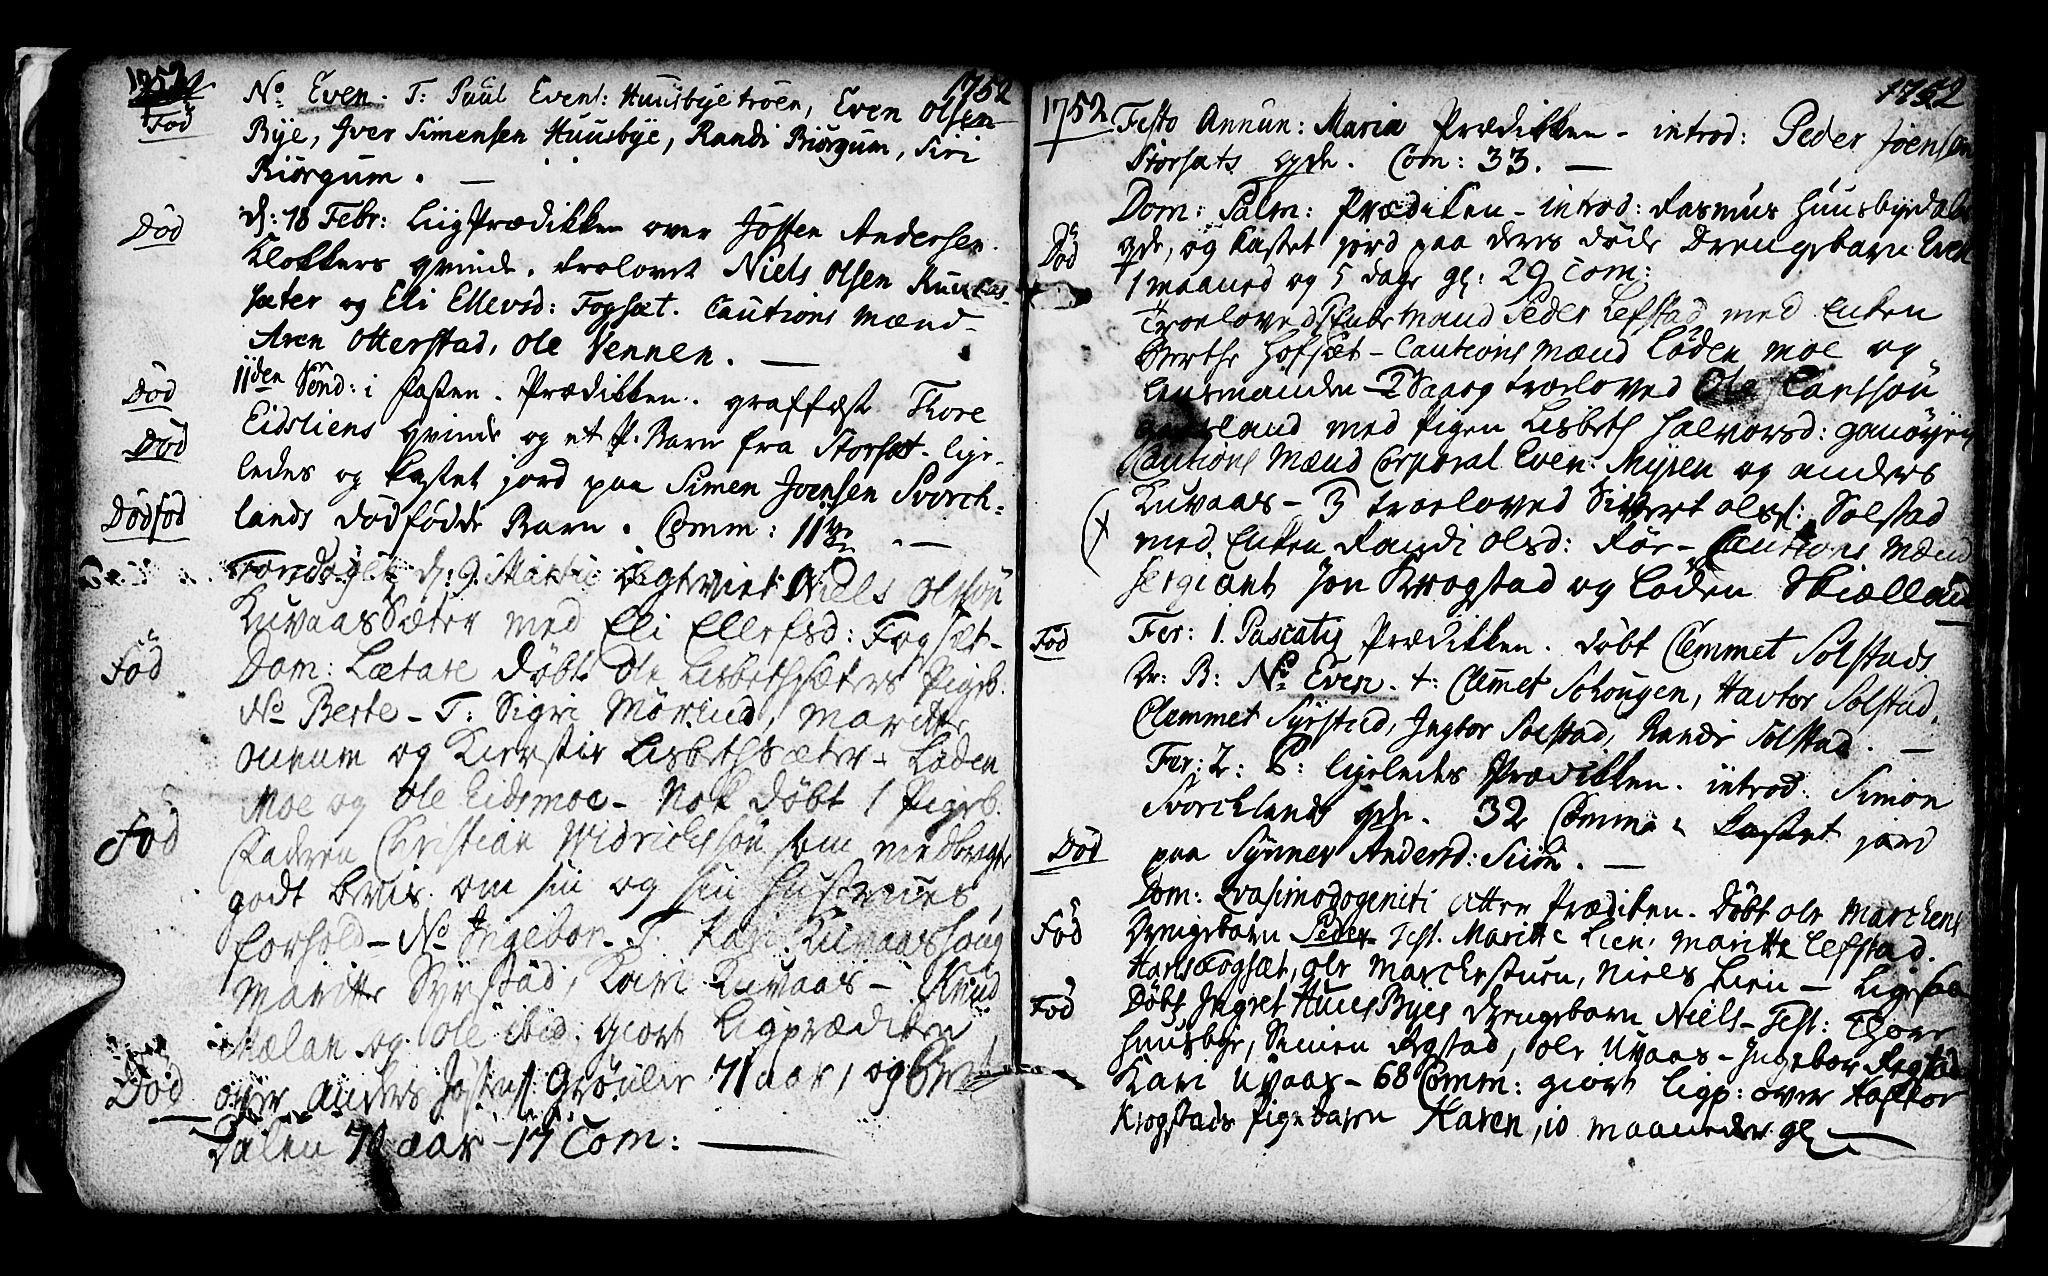 1752
1752
Fød
No Even. T: Paul Evens: Huusbyetrøen, Even Olsen
Bye, Iver Simensen Huusbye, Randi Biörgum, Siri
Biörgum. —
Død
d: 18 Febr: Liigprædikken over Jösten Andersen
Klokkers qvinde. trolovet Niels Olsen Kuvaas-
sæter og Eli Ellevsd: Fogsæt. Cautions Mænd
Aren Otterstad, Ole Vennen. —
Død
IIden Sönd: i Fasten. Prædikken. graffæst Thore
Død
Eidsliens qvinde og et P. Barn fra Storsæt. lige-
ledes og kastet jord paa Simen Joensen Svorck-
Dødfød
lands dødfødde Barn. Comm: 11 —
Torsdagen d: 9 Martii Egtviet Niels Olssön
Kuvaassæter med Eli Ellefsd: Fogsæt-
Fød
Dom: Lætare Døbt Ole Lisbethsæters Pigeb.
No Berte - T: Sigri Mörind, Maritte
og Kierstie Lisbethsæter - Loden
Moe og Ole Eidsmoe - Nok døbt 1 Pigeb.
Fød
Fadren Christian Widrichssön som medbragte
godt beviis om sin og sin Hustrues
forhold - No Ingebor - T. Kari Kuvaashoug
Maritte Syrstad, Kari Kuvaas - Knud
Mælan og Ole ibid. giort Ligprædiken
Død
over Anders Jostens: Grøulie 71 aar, og
Dalen 70 aar - 17 Com: —
1752
1752
Festo Annun: Mariæ Prædikken - introd: Peder Joensen
Storsæts qde. Com: 33. —
Dom: Palm: Prædiken - introd: Rasmus Huusbyedals
Død
qde, og kastet jord paa deres døde Drengebarn Even
1 maaned og 5 dage gl: 29 Com:
Troeloved Peder Lefstad med Enken
Berthe Hofsæt - Cautions Mænd Loden Moe og
Lensmanden - 2 troeloved Ole Carlssön
med Pigen Lisbeth Halvorsd:
Cautions Mænd Corporal Even Mysen og Anders
Kuvaas - 3 troeloved Sivert Ols: Solstad
med Enken Randi Olsd: Rør - Cautions Mænd
Sergeant Jon Krogstad og Loden Skiælland
Fød
Fer: 1. Pascatis Prædikken. døbt Clemmet Solstads
Dr: B: No Even. t: Clemet Schougen, Havtor Solstad,
Clemmet Syrstad, Ingbor Solstad, Randi Solstad. —
Fer: 2: P: ligeledes Prædikken. introd: Simon
Svorcklands qde. 32 Comm: kastet jord
Død
paa Synnev Andersd: Siim. —
Dom: Qvasimodogeniti atter Prædiken. Døbt Ole Marckens
Fød
Drengebarn Peder Test. Maritte Lien, Maritte Lefstad.
Hans Fogsæt, Ole Marckestuen, Niels Lien - Ligesaa
Fød
Døbt Ingret HuusByes Drengebarn Niels - Test: Thore
Huusbye, Simen Aegstad, Ole Uvaas - Ingebor Aegstad
Kari Uvaas - 68 Comm: giort Ligp: over Haftor
Krogstads Pigebarn Karen, 10 maaneder gl —